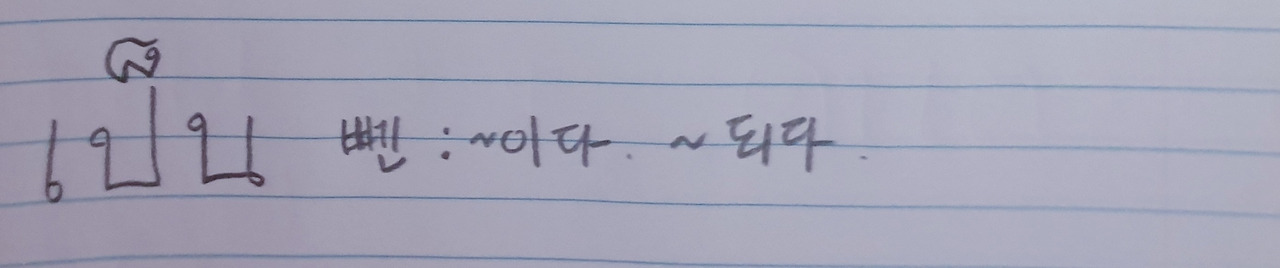 เป็น 뻰 : ~이다. ~되다.